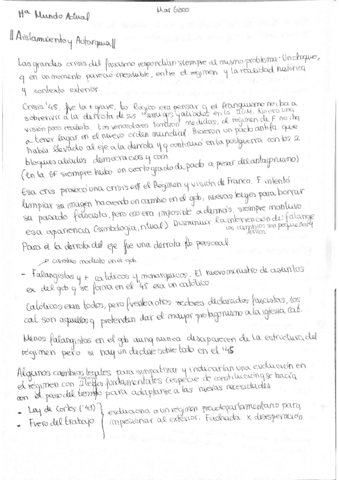 Hª Mundo Actual
Mar Gisso
|| Aislamiento y Autarquía ||
Las grandes crisis del fascismo respondían siempre al mismo problema: Un choque,
q en un momento pareció irresoluble, entre el régimen y la realidad histórica
y contexto exterior
Crisis '45, fue la + grave, lo lógico era pensar q el franquismo no iba a
sobrevivir a la derrota de sus "amigos y aliados en la IIGM. No era una
visión poco realista. Los vencedores tomaron medidas, el régimen de F no iba
a tener lugar en el nuevo orden mundial. Hicieron un pacto antifa que
había llevado al eje a la derrota y q continuó en la postguerra con los 2
bloques aliados democracias y com
(En la GF siempre hubo un cierto grado de pacto a pesar del antagonismo)
Esa crisis provocó una crisis en el Regimen y visión de Franco. F intentó
limpiar su imagen haciendo un cambio en el gob, nuevas leyes para borrar
su pasado falangista, pero eso era imposible además, siempre mantuvo
esa apariencia (simbología, ritual) Disminuir la intervención de falange
Para él la derrota del eje fue una derrota personal
→ cambio modesto en el gob
- Falangistas y + católicos y monárquicos. El nuevo ministro de asuntos
ex del gob q se forma en el '45 era un católico
Católicos eran todos, pero frente a otros sectores declarados fascistas, los
cat. son aquellos q pretenden dar el mayor protagonismo a la iglesia Cat.
Menos falangistas en el gob aunq nunca desaparecen de la estructura del
régimen pero si hay un declive sobre todo en el '45
Algunos cambios legales para
y indicarían una evolución en
el régimen con 2 leyes fundamentales (especie de constitución q se hacía
con el paso del tiempo para adaptarse a las nuevas necesidades
- Ley de Cortes ('43)
- Fuero del trabajo
evoluciona a un régimen pseudoparlamentario para
impresionar al exterior. Fachada x desesperación